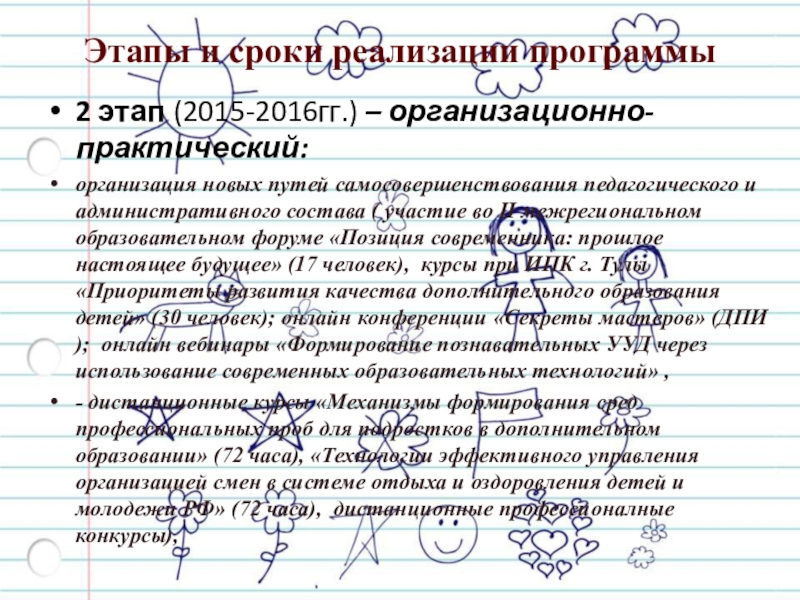 Этапы и сроки реализации программы
• 2 этап (2015-2016гг.) – организационно-
практический:
• организация новых путей самосовершенствования педагогического и
административного состава ( участие во II межрегиональном
образовательном форуме «Позиция современника: прошлое
настоящее будущее» (17 человек), курсы при ИПК г. Тулы
«Приоритеты развития качества дополнительного образования
детей» (30 человек); онлайн конференции «Секреты мастеров» (ДПИ
); онлайн вебинары «Формирование познавательных УУД через
использование современных образовательных технологий» ,
• - дистанционные курсы «Механизмы формирования сред
профессиональных проб для подростков в дополнительном
образовании» (72 часа), «Технологии эффективного управления
организацией смен в системе отдыха и оздоровления детей и
молодежи РФ» (72 часа), дистанционные профессионалные
конкурсы),